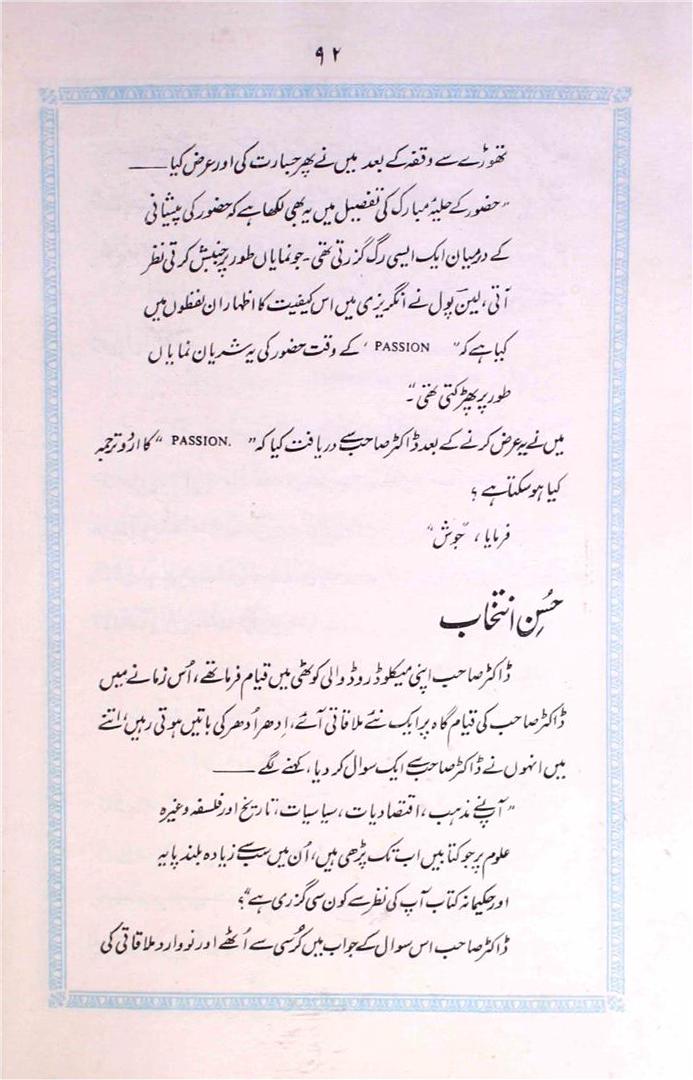 ۹۲
تھوڑے سے وقفہ کے بعد میں نے پھر جسارت کی اور عرض کیا ——
”حضور کے حلیۂ مبارک کی تفصیل میں یہ بھی لکھا ہے کہ حضور کی پیشانی
کے درمیان ایک ایسی رگ گزرتی تھی۔ جو نمایاں طور پر جنبش کرتی نظر
آتی، لین پول نے انگریزی میں اس کیفیت کا اظہار ان لفظوں میں
کیا ہے کہ ” PASSION ‘ کے وقت حضور کی یہ شریان نمایاں
طور پر پھڑکتی تھی“۔
میں نے یہ عرض کرنے کے بعد ڈاکٹر صاحب سے دریافت کیا کہ ” PASSION. “ کا اردو ترجمہ
کیا ہو سکتا ہے؟
فرمایا، ”جوش“
حُسنِ انتخاب
ڈاکٹر صاحب اپنی میکلوڈ روڈ والی کوٹھی میں قیام فرما تھے، اُس زمانے میں
ڈاکٹر صاحب کی قیام گاہ پر ایک نئے ملاقاتی آئے، اِدھر اُدھر کی باتیں ہوتی رہیں، اتنے
میں انہوں نے ڈاکٹر صاحب سے ایک سوال کر دیا، کہنے لگے ——
”آپ نے مذہب، اقتصادیات، سیاسیات، تاریخ اور فلسفہ وغیرہ
علوم پر جو کتابیں اب تک پڑھی ہیں، اُن میں سب سے زیادہ بلند پایہ
اور حکیمانہ کتاب آپ کی نظر سے کون سی گزری ہے“؟
ڈاکٹر صاحب اس سوال کے جواب میں کُرسی سے اُٹھے اور نووارد ملاقاتی کی